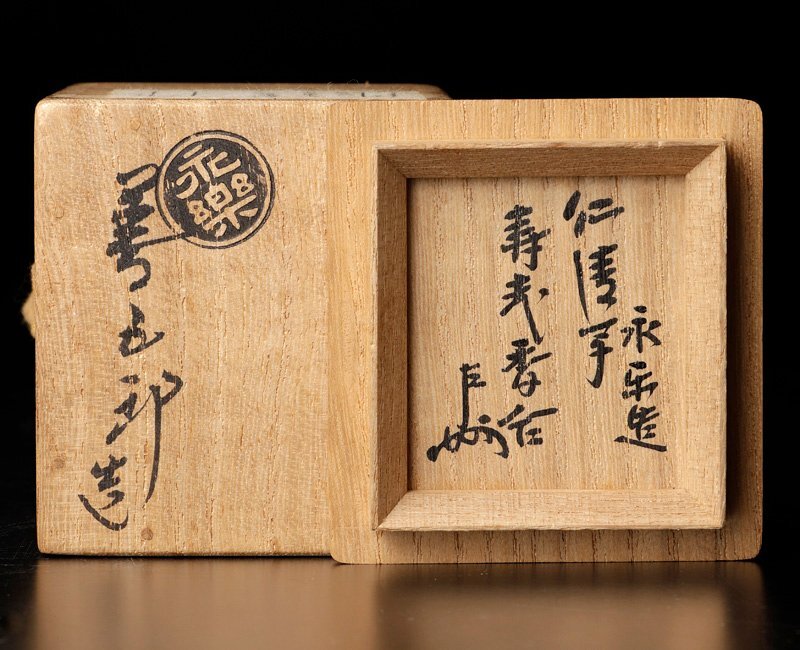 永樂
善五郎造
永楽造
仁清手
寿 香合